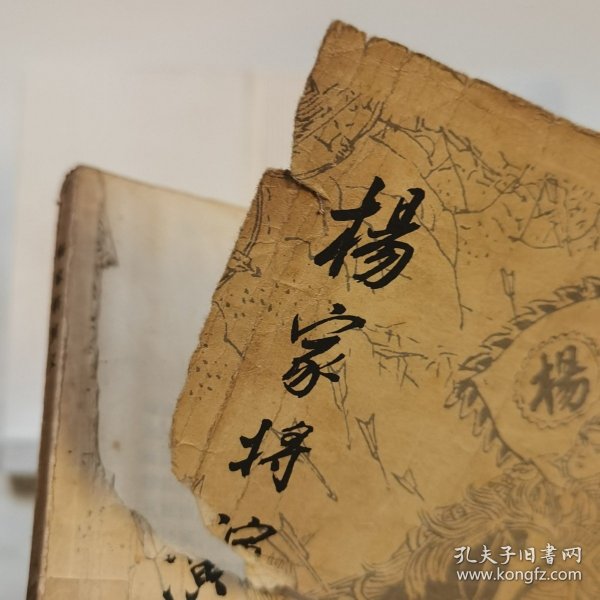 楊家将演
楊
孔夫子旧书网
www.kongfz.com